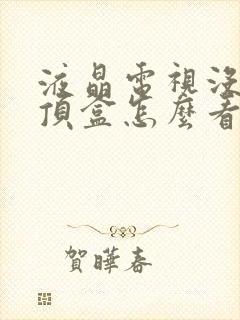 液晶電視沒
頂盒怎麼看
賀曄春